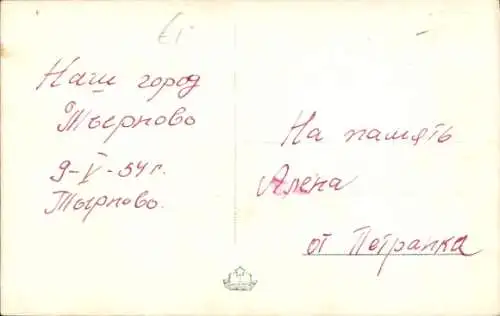 Наш город
Тырново
9-V-54 г.
Тырново.
На память
Алена
от Петранка